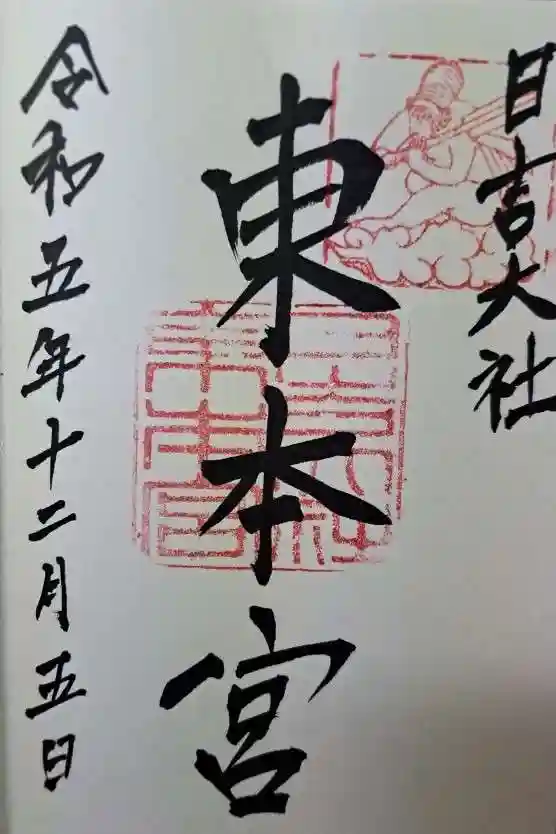 日吉大社
東本宮
令和五年十二月五日